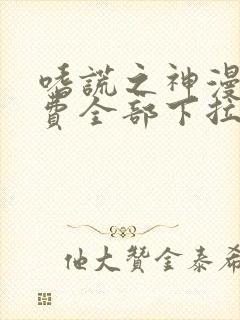 嗜謊之神漫
費全部下拉
他大贊金泰希